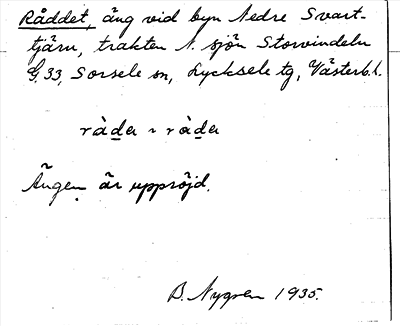 Råddet, äng vid byn Nedre Svart-
tjärn, trakten N. sjön Storvindeln
G. 33, Sorsele sn, Lycksele tg, Västerb. l.
ràda ~ ràda
Ängen är uppröjd.
B. Nygren 1935.